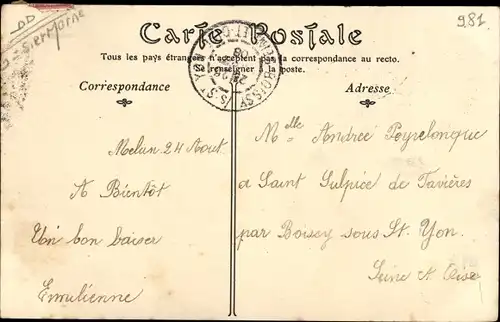 981
DD
Carte Postale
Tous les pays étrangers n'acceptent pas la correspondance au recto.
Se renseigner à la poste.
Correspondance
Adresse
Melun 24 Aout
A Bientôt
Un bon baiser
Emilienne
Melle Andrée Peyrelongue
a Saint Sulpice de Favières
par Boissy sous St. Yon.
Seine et Oise